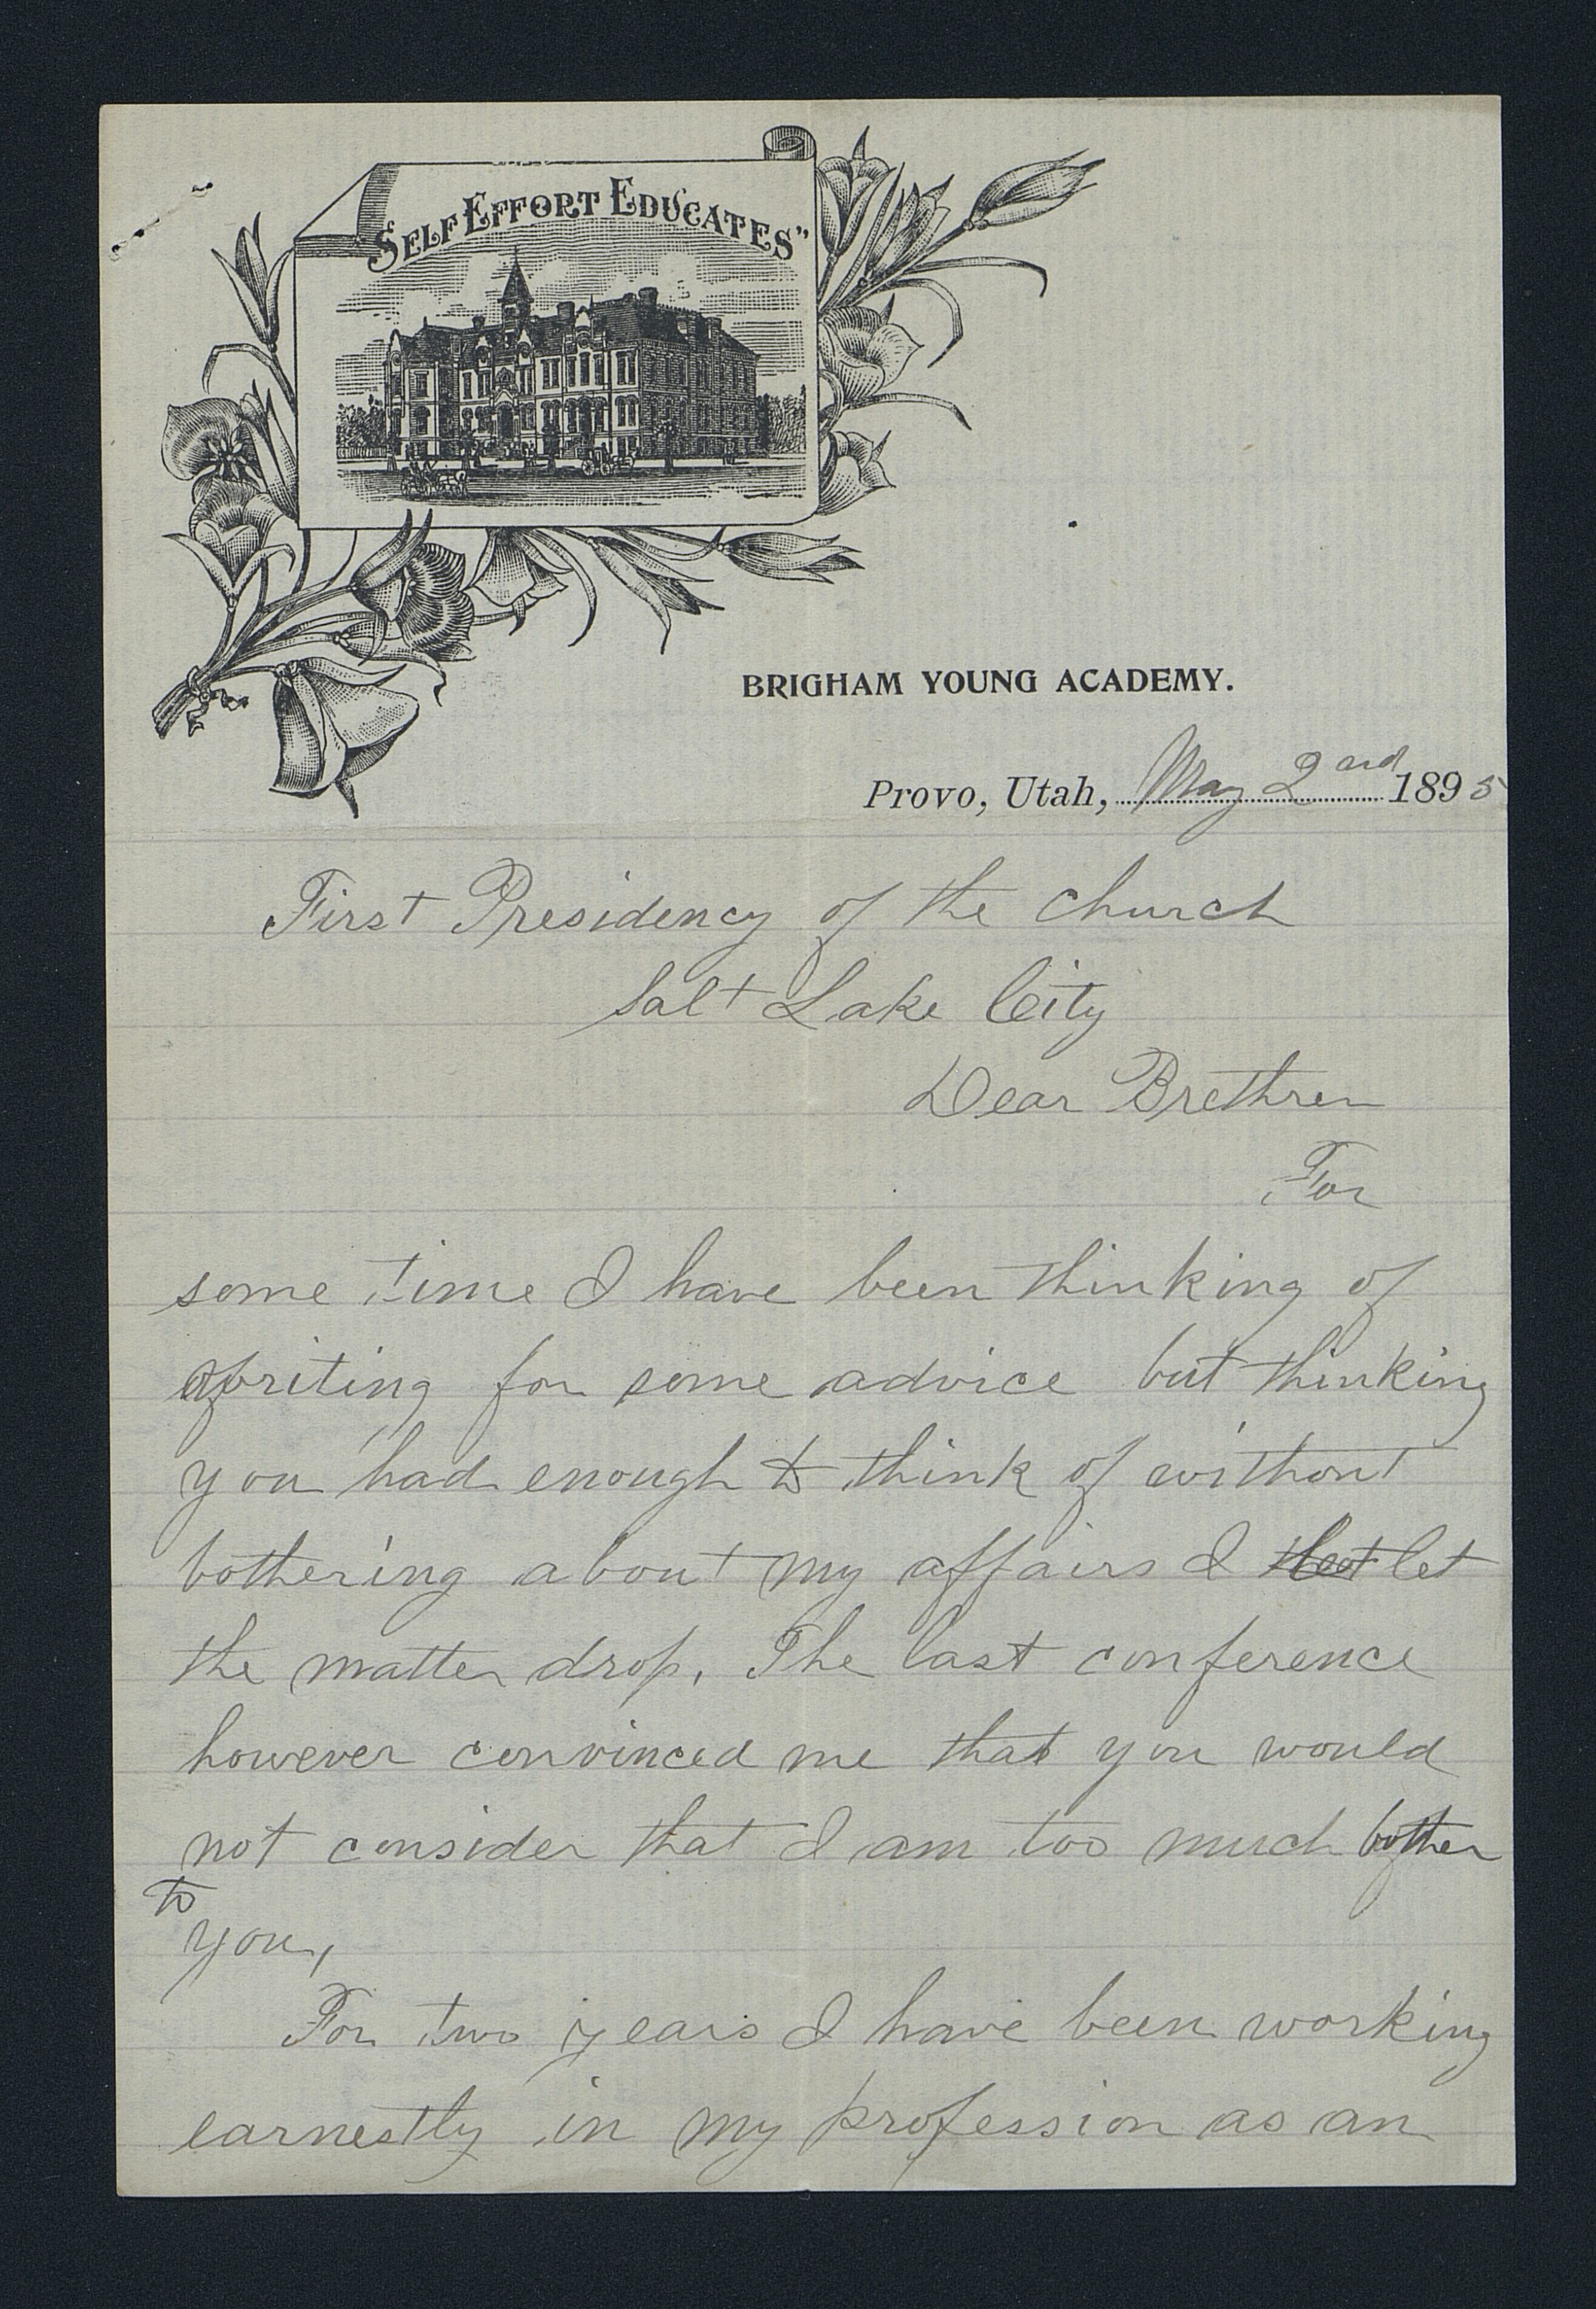 "SELF EFFORT EDUCATES"
BRIGHAM YOUNG ACADEMY.
Provo, Utah, May 2ard 1895
First Presidency of the church
Salt Lake City
Dear Brethren
For
some time I have been thinking of
writing for some advice but thinking
you had enough to think of without
bothering about my affairs I let
the matter drop. The last conference
however convinced me that you would
not consider that I am too much bother
to
you,
For two years I have been working
earnestly in my profession as an